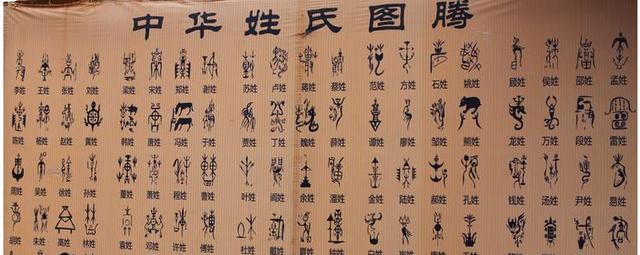 中华姓氏图腾
李姓 王姓 张姓 刘姓 梁姓 宋姓 郑姓 谢姓 苏姓 卢姓 蒋姓 蔡姓 范姓 方姓 石姓 姚姓 顾姓 侯姓 邵姓 孟姓
陈姓 杨姓 赵姓 黄姓 韩姓 唐姓 冯姓 于姓 贾姓 丁姓 魏姓 薛姓 谭姓 廖姓 邹姓 熊姓 龙姓 万姓 段姓 雷姓
周姓 吴姓 徐姓 孙姓 董姓 萧姓 程姓 曹姓 叶姓 阎姓 余姓 潘姓 金姓 陆姓 郝姓 孔姓 钱姓 汤姓 尹姓 易姓
胡姓 朱姓 高姓 林姓 袁姓 邓姓 许姓 傅姓 杜姓 戴姓 夏姓 钟姓